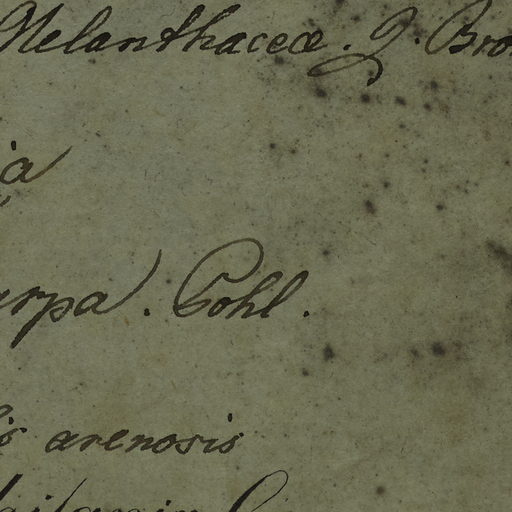 Melanthaceæ. R. Bro
ia
arpa. Pohl.
is arenosis